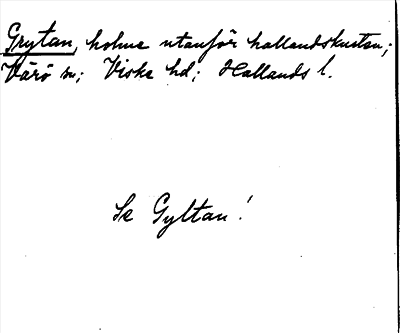 Grytan, holme utanför hallandskusten;
Värö sn; Viske hd; Hallands l.
Se Gyltan!